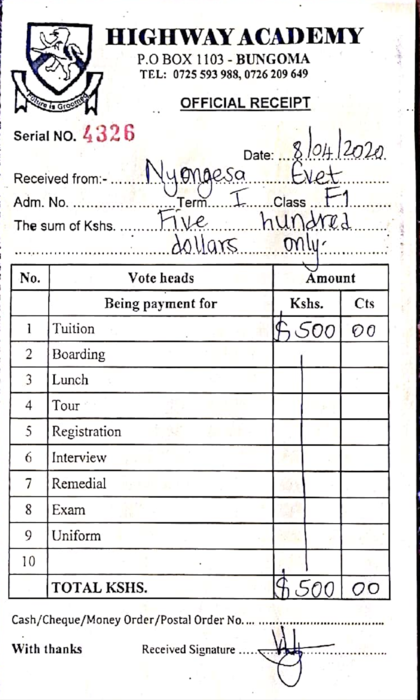 HIGHWAY ACADEMY
P.O BOX 1103 - BUNGOMA
TEL: 0725 593 988, 0726 209 649
OFFICIAL RECEIPT
Serial NO. 4326
Date: 8/04/2020
Received from:- Nyongesa Evet
Adm. No. Term I Class F1
The sum of Kshs. Five hundred
dollars only.
No. Vote heads Amount
Being payment for Kshs. Cts
1 Tuition $500 00
2 Boarding
3 Lunch
4 Tour
5 Registration
6 Interview
7 Remedial
8 Exam
9 Uniform
10
TOTAL KSHS. $500 00
Cash/Cheque/Money Order/Postal Order No.
With thanks Received Signature